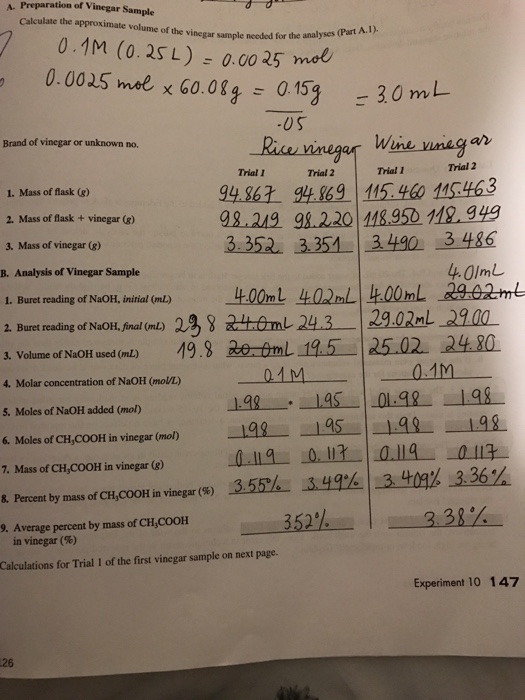 A. Preparation of Vinegar Sample
Calculate the approximate volume of the vinegar sample needed for the analyses (Part A.1).
0.1M (0.25L) = 0.0025 mol
0.0025 mol x 60.08g = 0.15g = 3.0 mL
.05
Brand of vinegar or unknown no. Rice vinegar Wine vinegar
Trial 1 Trial 2 Trial 1 Trial 2
1. Mass of flask (g) 94.867 94.869 115.460 115.463
2. Mass of flask + vinegar (g) 98.219 98.220 118.950 118.949
3. Mass of vinegar (g) 3.352 3.351 3.490 3.486
B. Analysis of Vinegar Sample 4.01mL
1. Buret reading of NaOH, initial (mL) 4.00mL 4.02mL 4.00mL 29.02mL
2. Buret reading of NaOH, final (mL) 23.8 24.0mL 24.3 29.02mL 29.00
3. Volume of NaOH used (mL) 19.8 20.0mL 19.5 25.02 24.80
4. Molar concentration of NaOH (mol/L) 0.1M 0.1M
5. Moles of NaOH added (mol) 1.98 . 1.95 01.98 1.98
6. Moles of CH₃COOH in vinegar (mol) 1.98 1.95 1.98 1.98
7. Mass of CH₃COOH in vinegar (g) 0.119 0.117 0.119 0.117
8. Percent by mass of CH₃COOH in vinegar (%) 3.55% 3.49% 3.409% 3.36%
9. Average percent by mass of CH₃COOH 352% 3.38%
in vinegar (%)
Calculations for Trial 1 of the first vinegar sample on next page.
Experiment 10 147
26